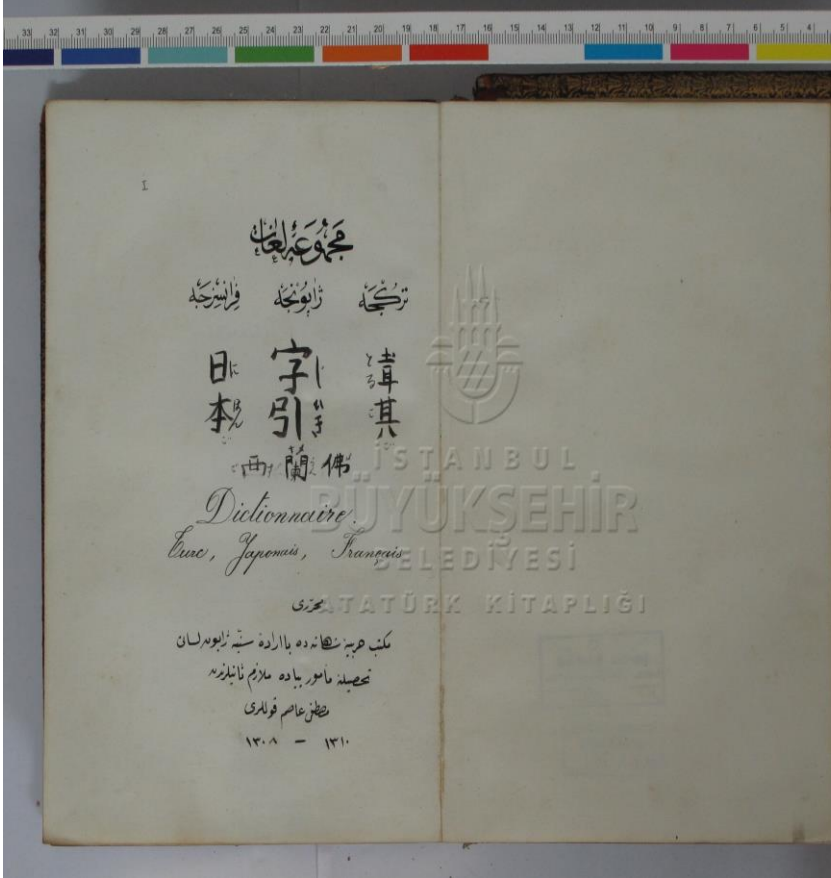 33 32 31 30 29 28 27 26 25 24 23 22 21 20 19 18 17 16 15 14 13 12 11 10 9 8 7 6 5 4
I
مجموعهٔ لغات
تركجه ژاپونجه فرانسزجه
土耳其 とるこ
字引 じびき
日本 にほん
佛蘭西
Dictionnaire.
Turc, Japonais, Français
محرری
مكتب حربیهٔ شاهانه ده باارادهٔ سنیه ژاپون لسان
تحصیلنه مأمور پیاده ملازم ثانیلرندن
مصطفی عاصم قوللری
١٣١٠ – ١٣٠٨
İSTANBUL
BÜYÜKŞEHİR
BELEDİYESİ
ATATÜRK KİTAPLIĞI